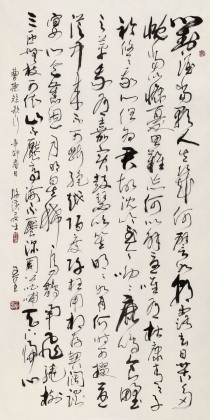 對酒當歌人生幾何譬如朝露去日苦多
慨當以慷憂思難忘何以解憂唯有杜康青青子
衿悠悠我心但為君故沈吟至今呦呦鹿鳴食野
之苹我有嘉賓鼓瑟吹笙明明如月何時可掇憂
從中來不可斷絕越陌度阡枉用相存契闊談
宴心念舊恩月明星稀烏鵲南飛繞樹
三匝無枝可依山不厭高海不厭深周公吐哺天下歸心
曹操短歌行